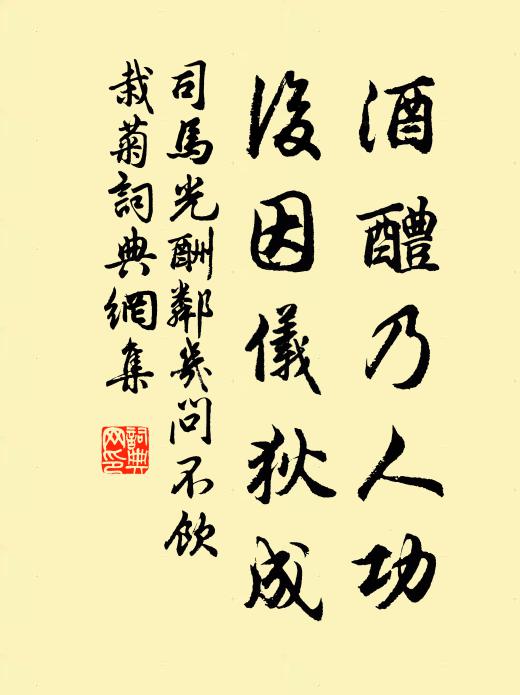 酒醴乃人功
後因儀狄成
司馬光酬鄰幾問不飲
栽菊詞典網集
詞典
网印